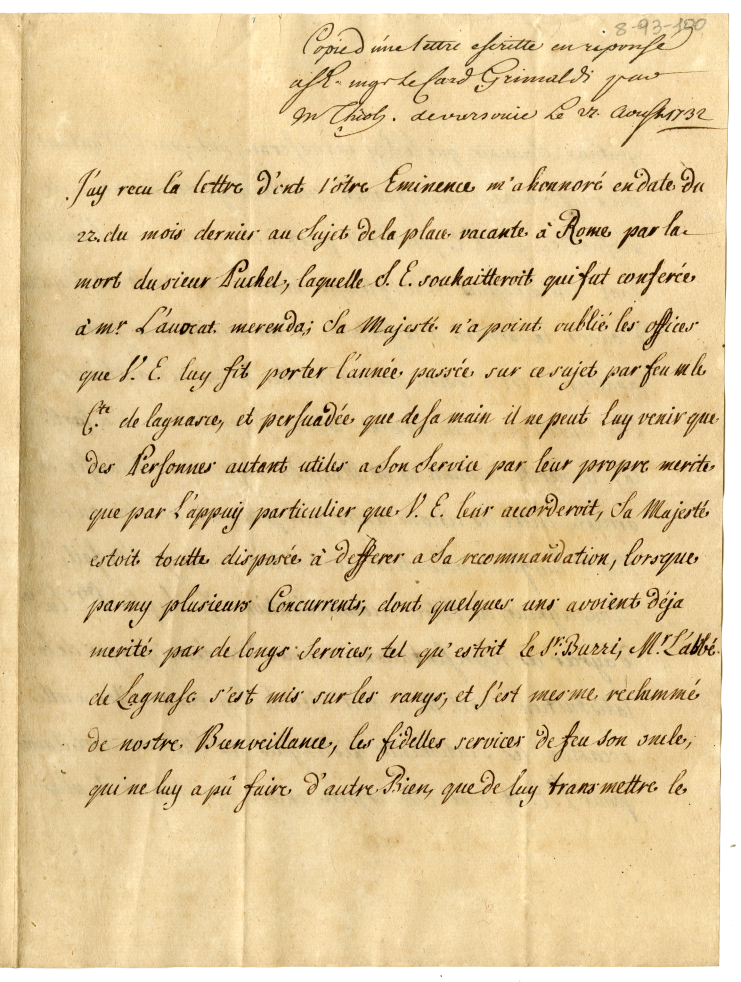 8-93-100
Copie d'une lettre escritte en reponse
a S.E. mgr le Card Grimaldi par
mr Thiol. de varsovie Le 22. Aoust 1732
J'ay recu la lettre d'ont Vôtre Eminence m'a honnoré en date du
22. du mois dernier au Sujet de la place vacante à Rome par la
mort du sieur Puchet, laquelle S. E. souhaitteroit qui fut conferée
à mr L'avocat merenda; Sa Majesté n'a point oublié les offices
que V. E. luy fit porter l'année passée sur ce sujet par feu m le
Cte de lagnasce, et persuadée que de sa main il ne peut luy venir que
des Personnes autant utiles a Son Service par leur propre merite
que par L'appuÿ particulier que V. E. leur accorderoit, Sa Majesté
estoit toutte disposée à defferer a Sa recommandation, lorsque
parmy plusieurs Concurrents, dont quelques uns avoient déja
merité par de longs Services, tel qu'estoit Le Sr. Buzzi, Mr. L'abbé
de Lagnasc s'est mis sur les rangs, et s'est mesme reclammé
de nostre Bienveillance, les fidelles services de feu son oncle,
qui ne luy a pû faire d'autre Bien, que de luy transmettre le